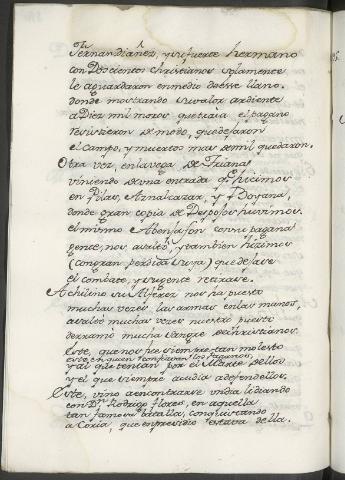 Fernandiañez, y su fuerte hermano
con Doscientos christianos solamente
le aguardaron en medio desse llano.
donde mostrando su valor ardiente
a Diez mil moros que traia el pagano
resistieron de modo, que dejaron
el campo, y muertos mas de mil quedaron.
Otra vez, en la vega de Triana
viniendo de una entrada q hicimos
en Pilas, Aznalcazar, y Boyana,
donde gran copia de Despojos huvimos.
el mismo Abenjafon con su pagana
gente, nos asaltó, y tambien hizimos
(con gran perdida suya) que dejase
el combate, y su gente retirase.
Achilino su Alferez nos ha puesto
muchas vezes las armas en las manos,
asaltó muchas vezes nuestro puesto
derramó mucha sangre de christianos.
Este, que nos fue siempre tan molesto
este, en quien confiavan los Paganos,
y al que tenian por el Marte dellos
y el que siempre acudia a defendellos.
Este, vino a encontrarse un dia lidiando
con Dn Rodrigo flores, en aquella
tan famosa batalla, conquistando
a Coria, que en presidio estava della.